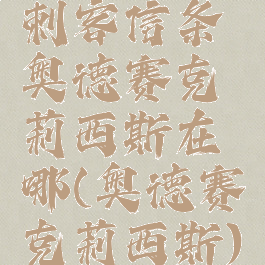 刺客信条
奥德赛克
莉西斯在
哪(奥德赛
克莉西斯)